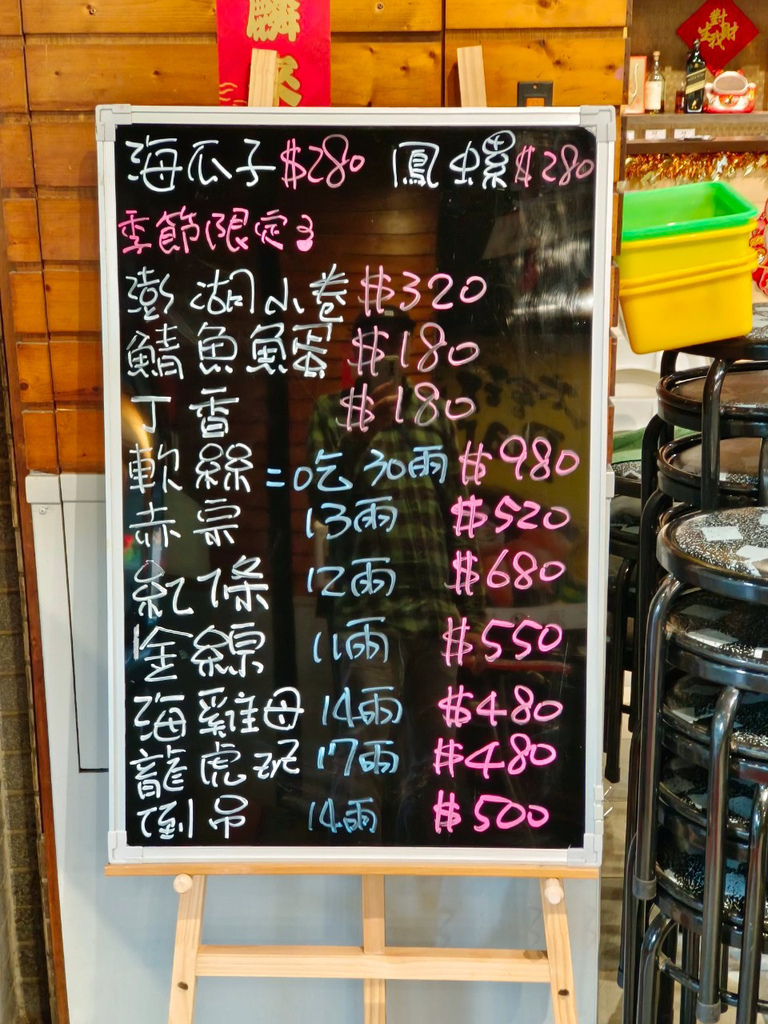 海瓜子 $280 鳳螺 $280
季節限定
澎湖小卷 $320
鯖魚魚蛋 $180
丁香 $180
軟絲=吃 30兩 $980
赤宗 13兩 $520
紅條 12兩 $680
金線 11兩 $550
海雞母 14兩 $480
龍虎斑 17兩 $480
倒吊 14兩 $500